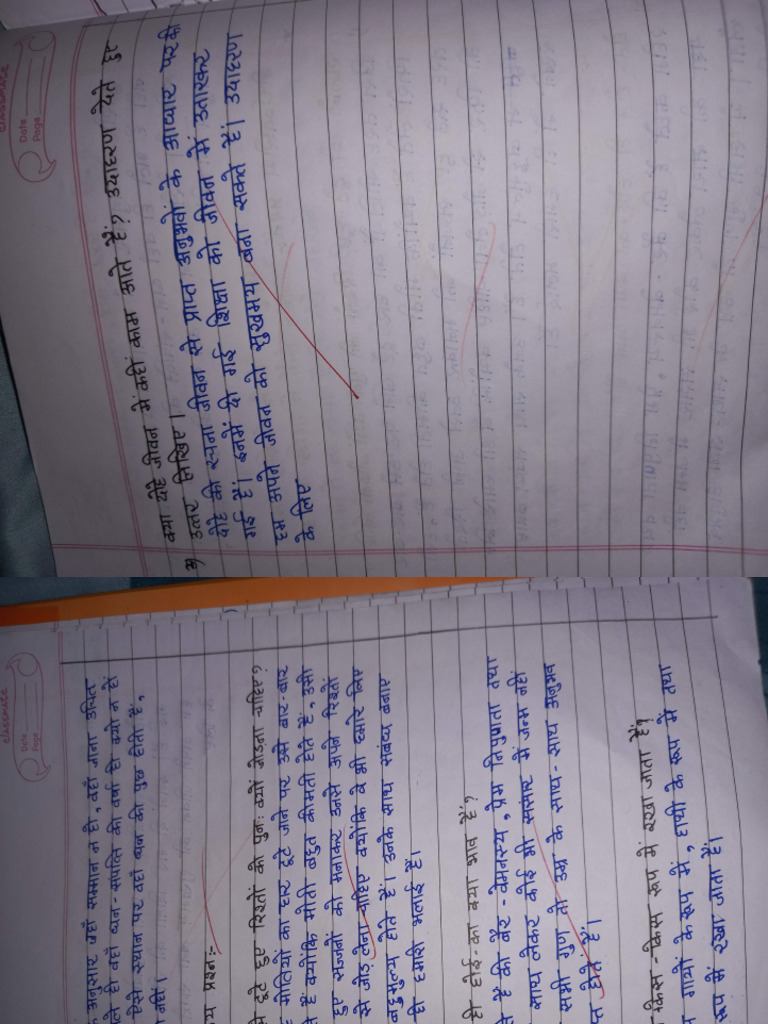 classmate
Date
Page
क्या दोहे जीवन में कहीं काम आते हैं? उदाहरण देते हुए
उत्तर लिखिए।
दोहे की रचना जीवन से प्राप्त अनुभवों के आधार पर की
गई है। इनमें दी गई शिक्षा को जीवन में उतारकर
हम अपने जीवन को सुखमय बना सकते हैं। उदाहरण
के लिए
classmate
Date
Page
अनुसार जहाँ सम्मान न हो, वहाँ जाना उचित
ही वहाँ धन-संपत्ति की वर्षा ही क्यों न हो
ऐसे स्थान पर वहाँ धन की पूछ होती है,
नहीं।
प्रश्न:-
टूटे हुए रिश्तों को पुनः क्यों जोड़ना चाहिए?
मोतियों का हार टूटे जाने पर उसे बार-बार
है क्योंकि मोती बहुत कीमती होते हैं, उसी
हुए सज्जनों को मनाकर उनसे अपने रिश्तों
से जोड़ लेना चाहिए क्योंकि वे भी हमारे लिए
बहुमुल्य होते हैं। उनके साथ संबंध बनाए
ही हमारी भलाई है।
ही होई-का क्या भाव है?
है की बैर-वैमनस्य, प्रेम निपुणता तथा
साथ लेकर कोई भी संसार में जन्म नहीं
सभी गुण तो उम्र के साथ-साथ अनुभव
होते हैं।
किस-किस रूप में रखा जाता है?
गायों के रूप में, हाथी के रूप में तथा
रूप में रखा जाता है।